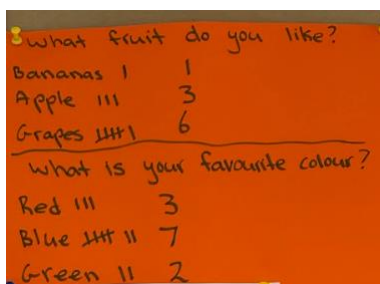 What fruit do you like?
Bananas I 1
Apple III 3
Grapes 卌 I 6
What is your favourite colour?
Red III 3
Blue 卌 II 7
Green II 2